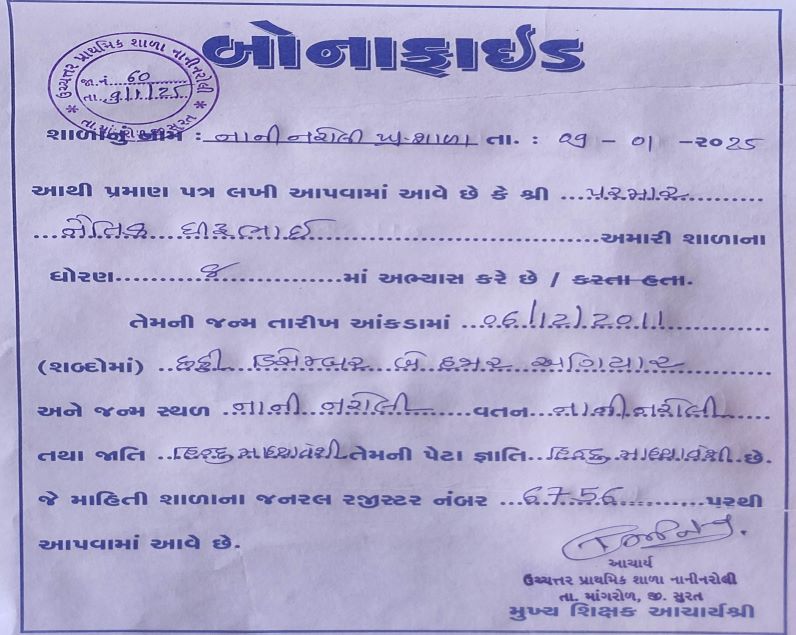 બોનાફાઇડ
ઉચ્ચત્તર પ્રાથમિક શાળા નાનીનરોલી
જા.નં. 60
તા. 9/1/25
શાળાનું નામ : નાની નરોલી પ્રા.શાળા તા. : 09 - 01 - 2025
આથી પ્રમાણ પત્ર લખી આપવામાં આવે છે કે શ્રી ...પરમાર...
...નૈતિક ધીરુભાઈ...અમારી શાળાના
ધોરણ...૪...માં અભ્યાસ કરે છે / કરતા હતા.
તેમની જન્મ તારીખ આંકડામાં ...06/12/2011...
(શબ્દોમાં) ...છઠ્ઠી ડિસેમ્બર બે હજાર અગિયાર...
અને જન્મ સ્થળ ..નાની નરોલી...વતન...નાનીનરોલી...
તથા જાતિ ..હિન્દુ મહ્યાવંશી તેમની પેટા જ્ઞાતિ...હિન્દુ મહ્યાવંશી.છે.
જે માહિતી શાળાના જનરલ રજીસ્ટર નંબર ...6756...પરથી
આપવામાં આવે છે.
આચાર્ય
ઉચ્ચત્તર પ્રાથમિક શાળા નાનીનરોલી
તા. માંગરોળ, જી. સુરત
મુખ્ય શિક્ષક આચાર્યશ્રી